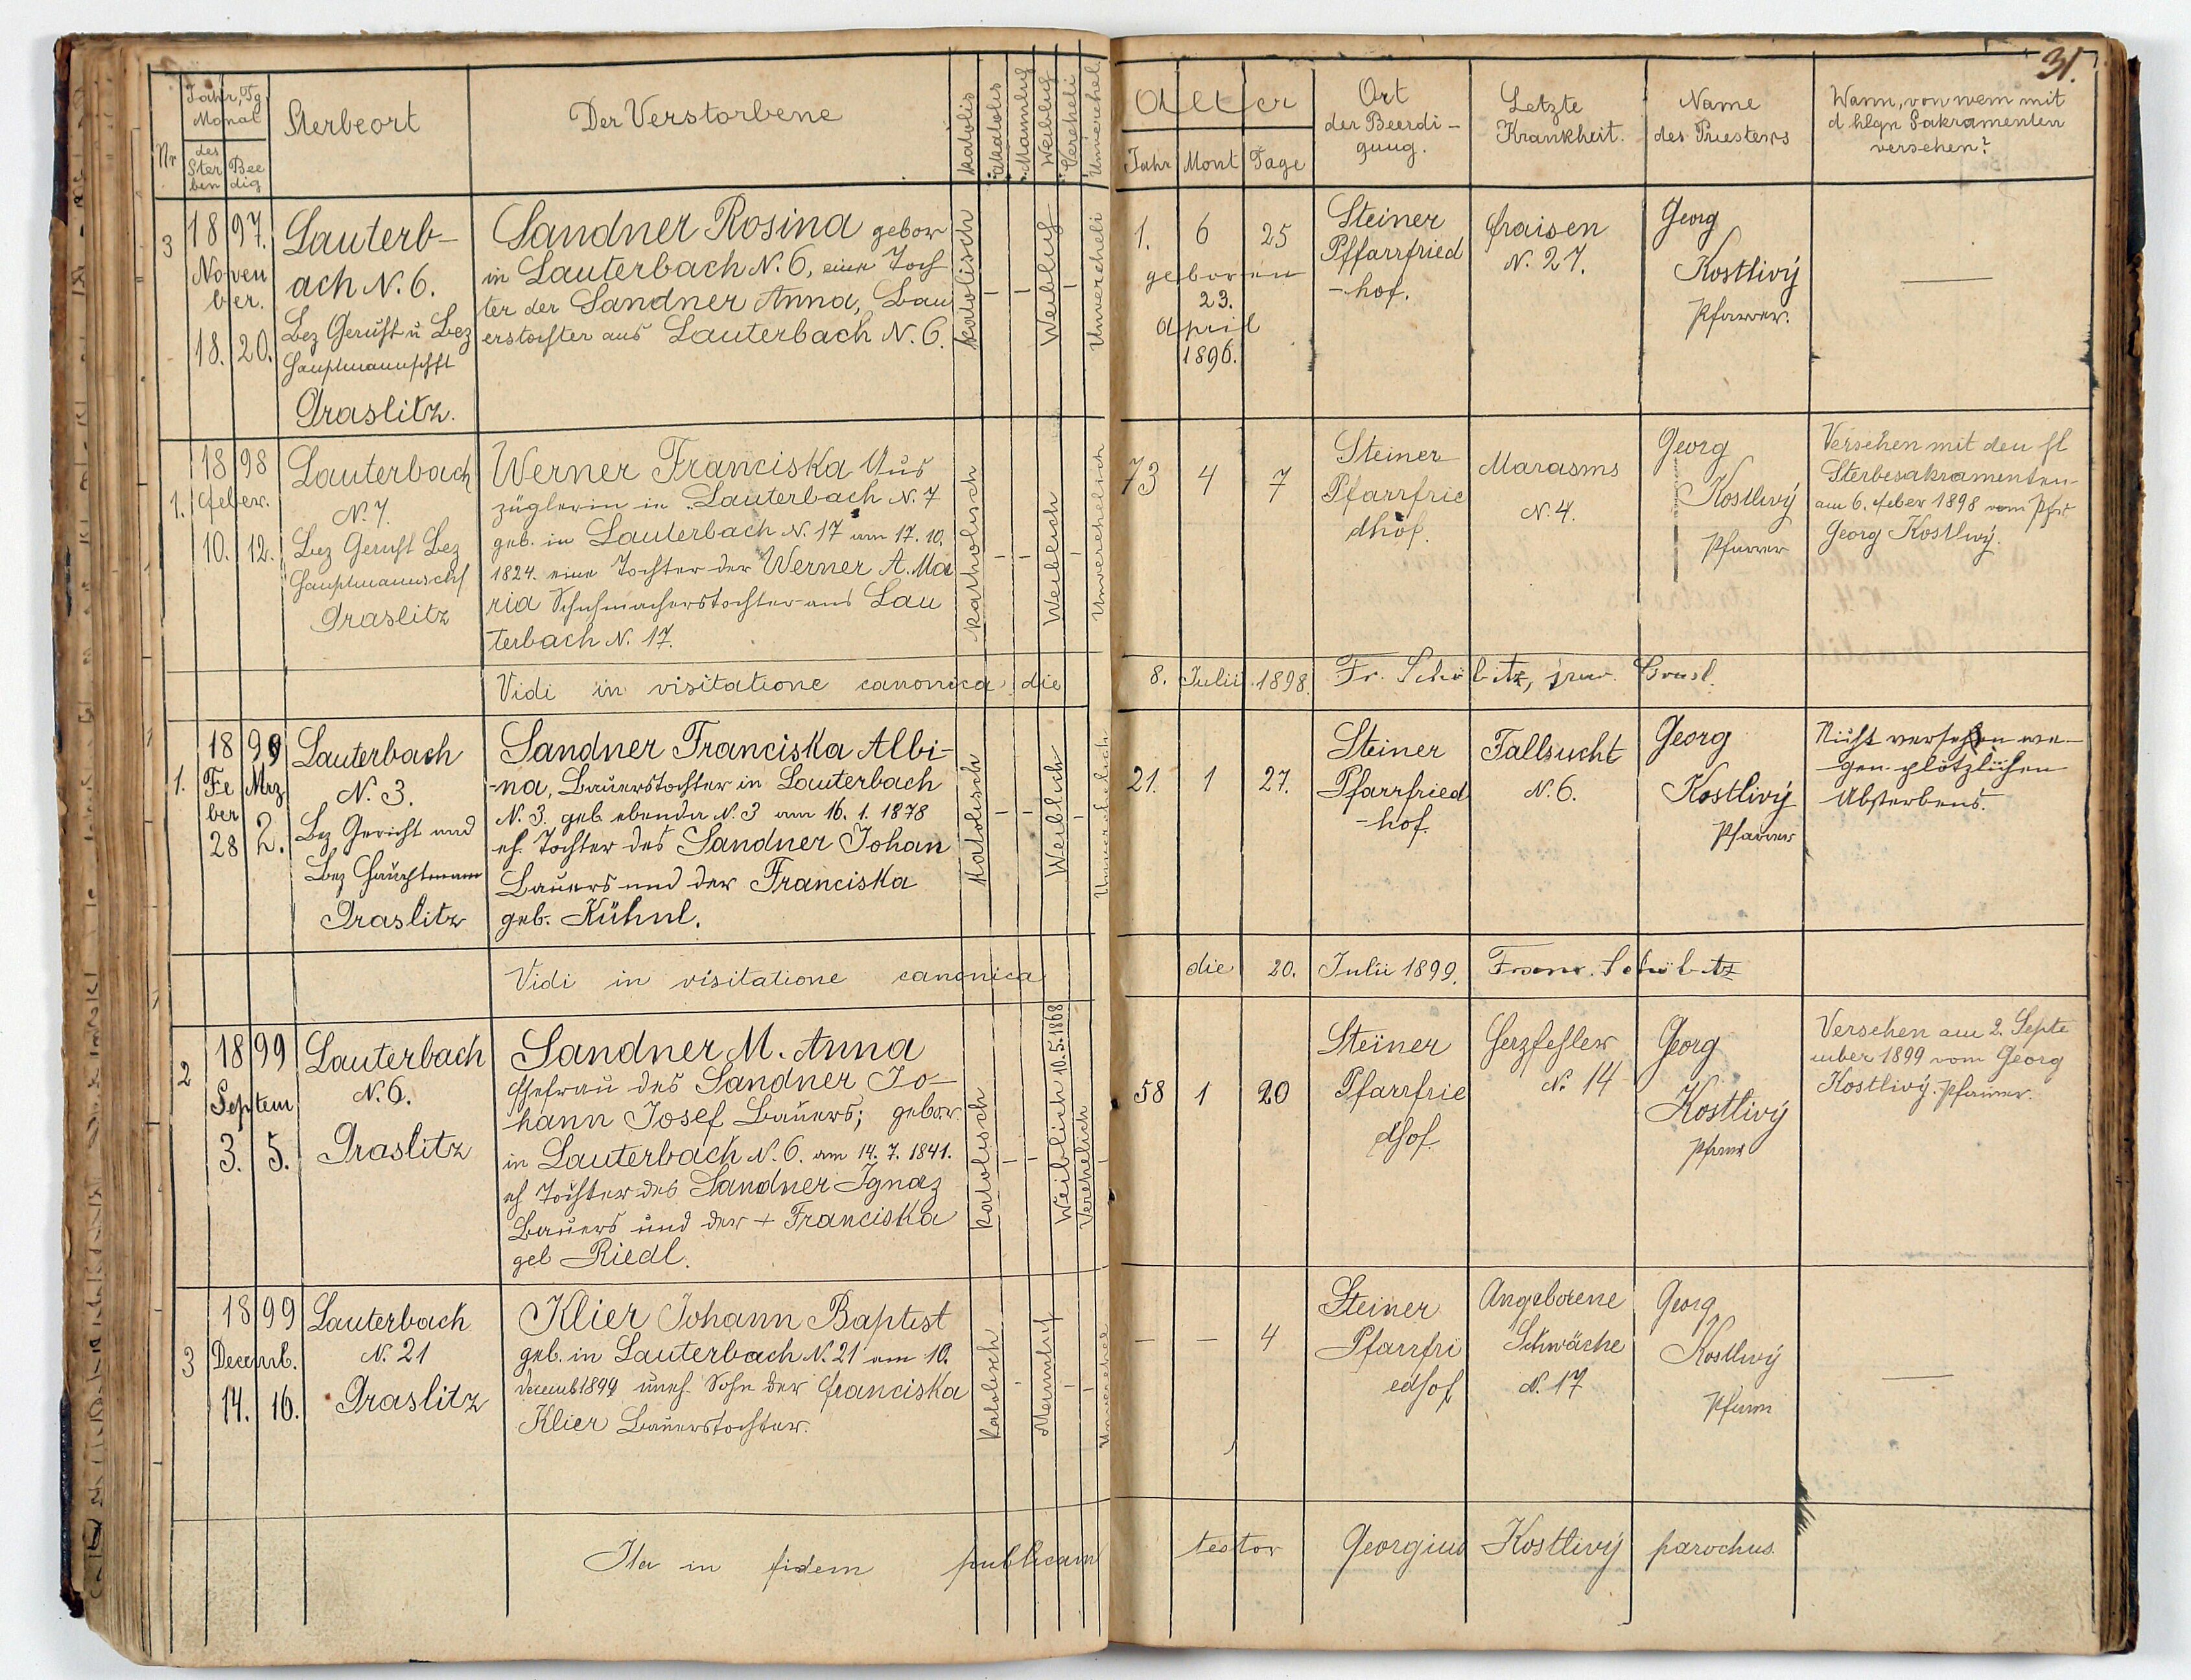 31.
Nr
Jahr, Tg
Monat
des
Ster
ben
Bee
dig
Sterbeort
Der Verstorbene
Katolis
Akatolis
Mannlich
Weiblich
Vereheli
Unverehel
Alter
Jahr
Mont
Tage
Ort
der Beerdi-
gung.
Letzte
Krankheit.
Name
des Priesters
Wann, von wem mit
d hlgn Sakramenten
versehen?
3
1897.
Noven
ber.
18. 20.
Lauterb-
ach N. 6.
Bez Gericht u Bez
Hauptmannschft
Graslitz.
Sandner Rosina gebor
in Lauterbach N. 6, eine Toch
ter der Sandner Anna, Bau
erstochter aus Lauterbach N. 6.
Katolisch
–
–
Weiblich
–
Unvereheli
1. 6 25
geboren
23.
April
1896.
Steiner
Pffarrfried
-hof.
Fraisen
N. 27.
Georg
Kostlivý
Pfarrer.
—
1.
1898
Feber.
10. 12.
Lauterbach
N. 7.
Bez Gericht Bez
Hauptmannschf
Graslitz
Werner Franciska Aus
züglerin in Lauterbach N. 7
geb. in Lauterbach N. 17 am 17. 10.
1824. eine Tochter der Werner A. Ma
ria Schuhmacherstochter aus Lau
terbach N. 17.
Katholisch
–
–
Weiblich
–
Unverehelisch
73 4 7
Steiner
Pfarrfrie
dhof.
Marasms
N. 4.
Georg
Kostlivý
Pfarrer
Versehen mit den hl
Sterbesakramenten
am 6. Feber 1898 vom Pfr
Georg Kostlivý.
Vidi in visitatione canonica die 8. Julii 1898.
1.
1899
Fe Mrz
ber
28 2.
Lauterbach
N. 3.
Bez Gericht und
Bez Hauptmann
Graslitz
Sandner Franciska Albi-
-na, Bauerstochter in Lauterbach
N. 3. geb. ebenda N. 3 am 16. 1. 1878
eh. Tochter des Sandner Johan
Bauers und der Franciska
geb. Kühnl.
Katolisch
–
–
Weiblich
–
21. 1 27.
Steiner
Pfarrfried
-hof.
Fallsucht
N. 6.
Georg
Kostlivý
Pfarrer
Nicht versehen we-
gen plötzlichen
Absterbens.
Vidi in visitatione canonica die 20. Julii 1899.
2
1899
Septem
3. 5.
Lauterbach
N. 6.
Graslitz
Sandner M. Anna
Ehefrau des Sandner Jo-
hann Josef Bauers; gebor.
in Lauterbach N. 6. am 14. 7. 1841.
eh Tochter des Sandner Ignaz
Bauers und der + Franciska
geb Riedl.
Katolisch
–
–
Weiblich 10. 5. 1868
Verehelich
–
58 1 20
Steiner
Pfarrfrie
dhof.
Herzfehler
N. 14
Georg
Kostlivý
Versehen am 2. Septe
mber 1899 vom Georg
Kostlivý. Pfarrer.
3
1899
Decemb.
14. 16.
Lauterbach
N. 21
Graslitz
Klier Johann Baptist
geb. in Lauterbach N. 21 am 10.
Decemb 1899 uneh. Sohn der Franciska
Klier Bauerstochter.
Katolisch
–
Mannlich
–
– – 4
Steiner
Pfarrfri
edhof
Angeborene
Schwäche
N. 17
Georg
Kostlivý
—
Ita in fidem publicam testor Georgius Kostlivý parochus.